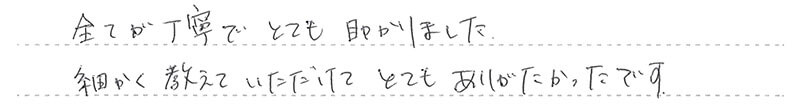 全てが丁寧でとても助かりました.
細かく教えていただけてとてもありがたかったです.